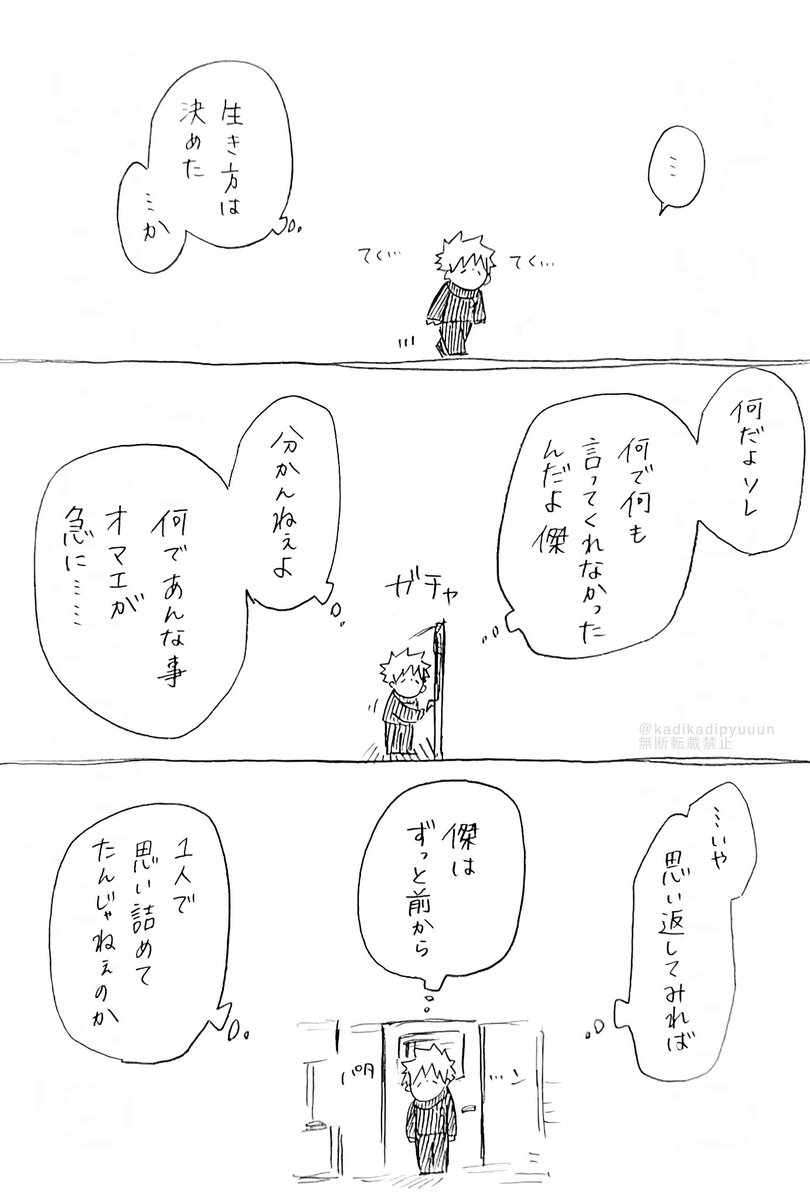 …
生き方は
決めた
…か
てく…
てく…
何だよソレ
何で何も
言ってくれなかった
んだよ傑
分かんねぇよ
何であんな事
オマエが
急に……
ガチャ
@kadikadipyuuun
無断転載禁止
…いや
思い返してみれば
傑は
ずっと前から
1人で
思い詰めて
たんじゃねぇのか
パタ
…ン